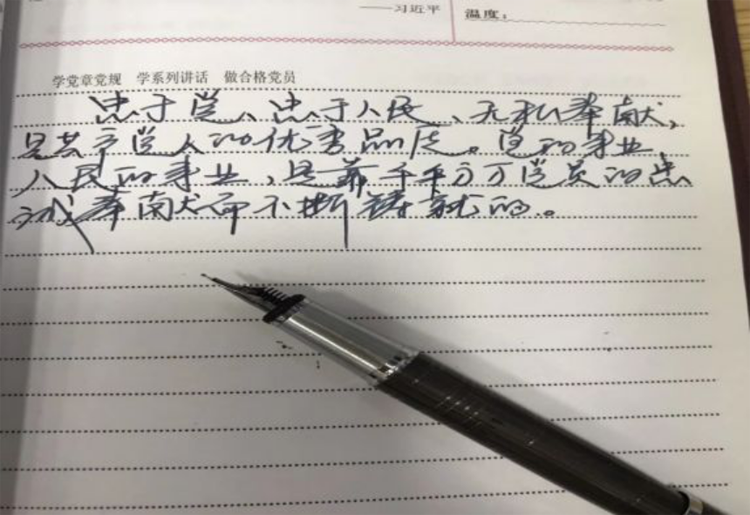 ——习近平
温度：
学党章党规 学系列讲话 做合格党员
忠于党、忠于人民、无私奉献，
是共产党人的优秀品质。党的事业，
人民的事业，是靠千千万万党员的忠
诚奉献而不断铸就的。